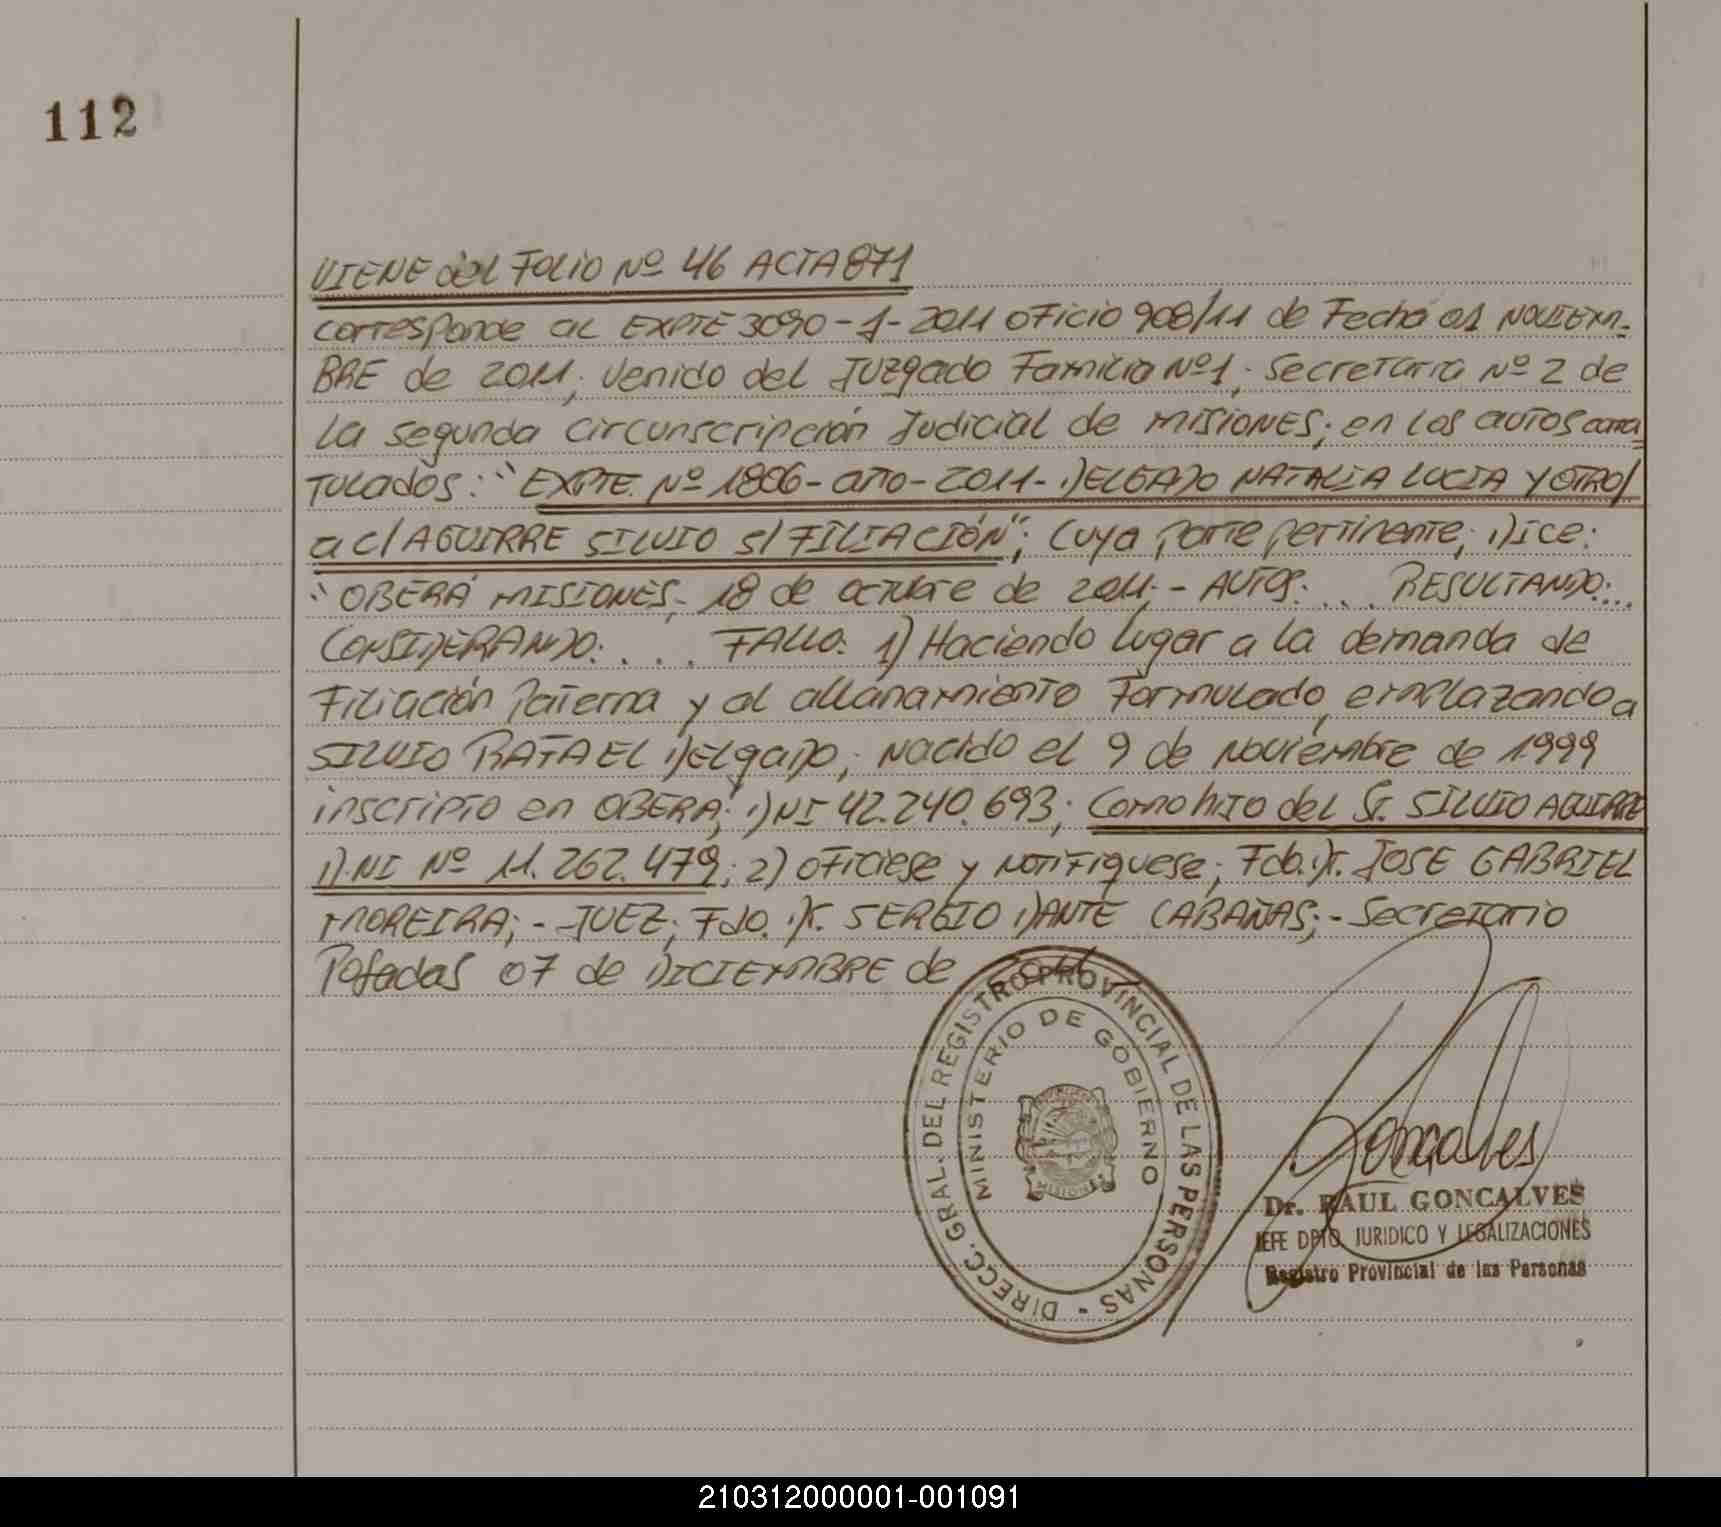 112
VIENE del Folio Nº 46 ACTA 871
corresponde al EXPTE 3090-J-2011 oficio 908/11 de Fecha 01 NOVIEM-
BRE de 2011; venido del Juzgado Familia Nº1; Secretaria Nº 2 de
la segunda circunscripción Judicial de MISIONES; en los autos cara
Tulados: "EXPTE. Nº 1806-año-2011-DELGADO NATALIA LUCIA Y OTRO/
a c/ AGUIRRE SILVIO s/ FILIACIÓN"; Cuya parte pertinente; Dice:
"OBERÁ MISIONES, 18 de octubre de 2011.- AUTOS: ... RESULTANDO:...
CONSIDERANDO: .... FALLO: 1) Haciendo lugar a la demanda de
Filiación Paterna y al allanamiento Formulado, emplazando a
SILVIO RAFAEL DELgaDO; nacido el 9 de Noviembre de 1999
inscripto en OBERÁ; DNI 42.240.693; Como hijo del Sr. SILVIO AGUIRRE
D.NI Nº 11.262.479; 2) oficiese y Notifiquese; Fdo. Dr. JOSE GABRIEL
MOREIRA; - JUEZ; Fdo. Dr. SERGIO DANTE CABAÑAS; - Secretario
Posadas 07 de DICIEMBRE de 2011
DIRECC. GRAL. DEL REGISTRO PROVINCIAL DE LAS PERSONAS -
MINISTERIO DE GOBIERNO
MISIONES
Goncalves
Dr. RAUL GONCALVES
JEFE DPTO. JURIDICO Y LEGALIZACIONES
Registro Provincial de las Personas
210312000001-001091